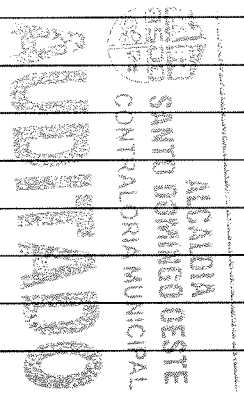 ALCALDIA
SANTO DOMINGO OESTE
CONTRALORIA MUNICIPAL
AUDITADO